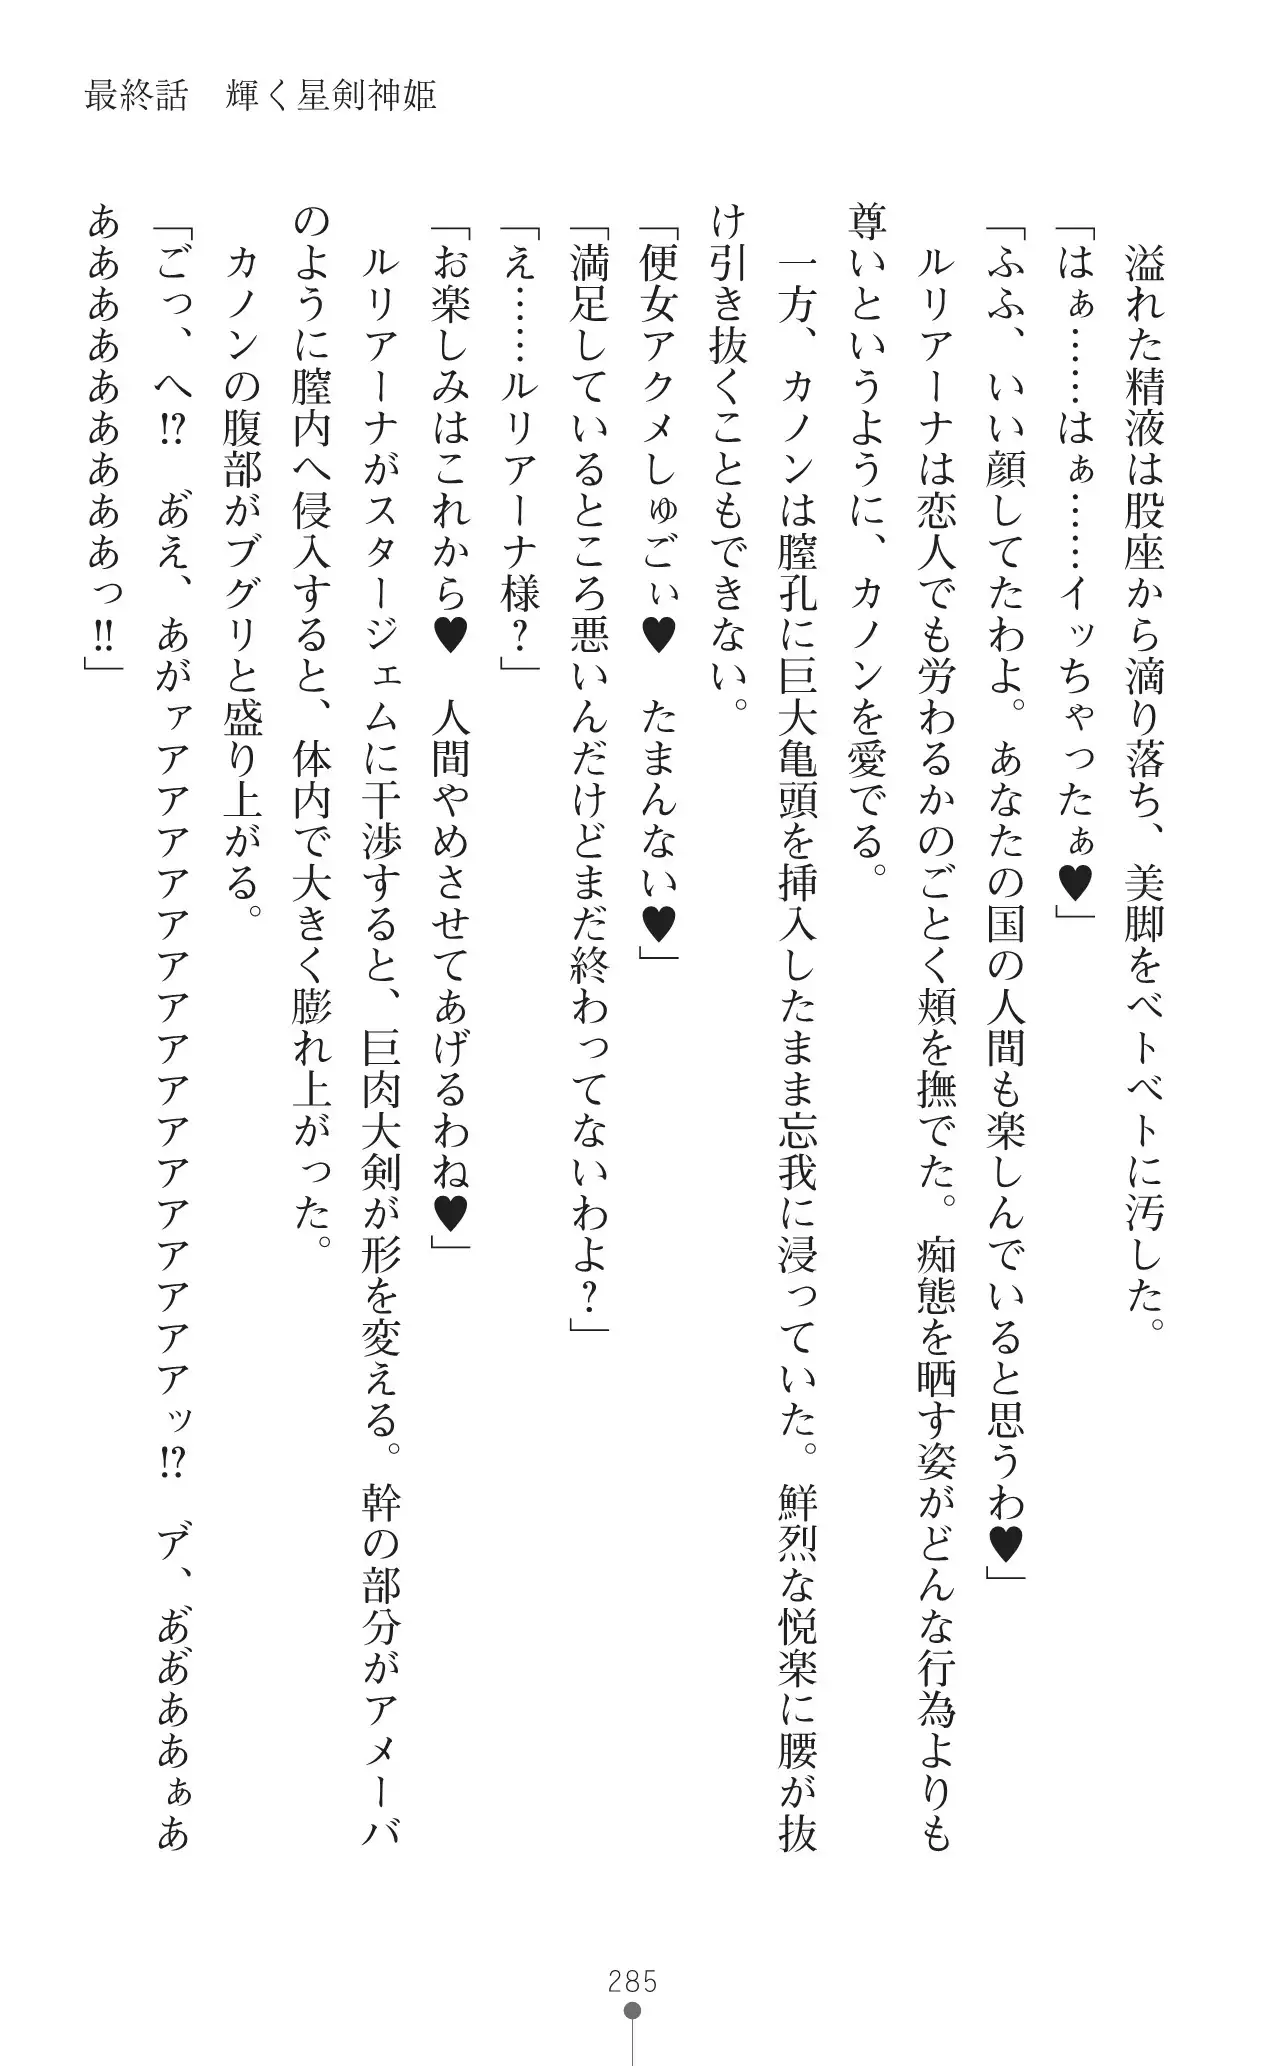 最終話　輝く星剣神姫
　溢れた精液は股座から滴り落ち、美脚をベトベトに汚した。
「はぁ……はぁ……イッちゃったぁ♥」
「ふふ、いい顔してたわよ。あなたの国の人間も楽しんでいると思うわ♥」
　ルリアーナは恋人でも労わるかのごとく頬を撫でた。痴態を晒す姿がどんな行為よりも
尊いというように、カノンを愛でる。
　一方、カノンは膣孔に巨大亀頭を挿入したまま忘我に浸っていた。鮮烈な悦楽に腰が抜
け引き抜くこともできない。
「便女アクメしゅごぃ♥　たまんない♥」
「満足しているところ悪いんだけどまだ終わってないわよ？」
「え……ルリアーナ様？」
「お楽しみはこれから♥　人間やめさせてあげるわね♥」
　ルリアーナがスタージェムに干渉すると、巨肉大剣が形を変える。幹の部分がアメーバ
のように膣内へ侵入すると、体内で大きく膨れ上がった。
　カノンの腹部がブグリと盛り上がる。
「ごっ、へ!?　あ゙え、あがァアアアアアアアアアアアアアアアアッ!?　ア゙、あ゙あ゙ああぁあ
あああああああああっ!!」
285